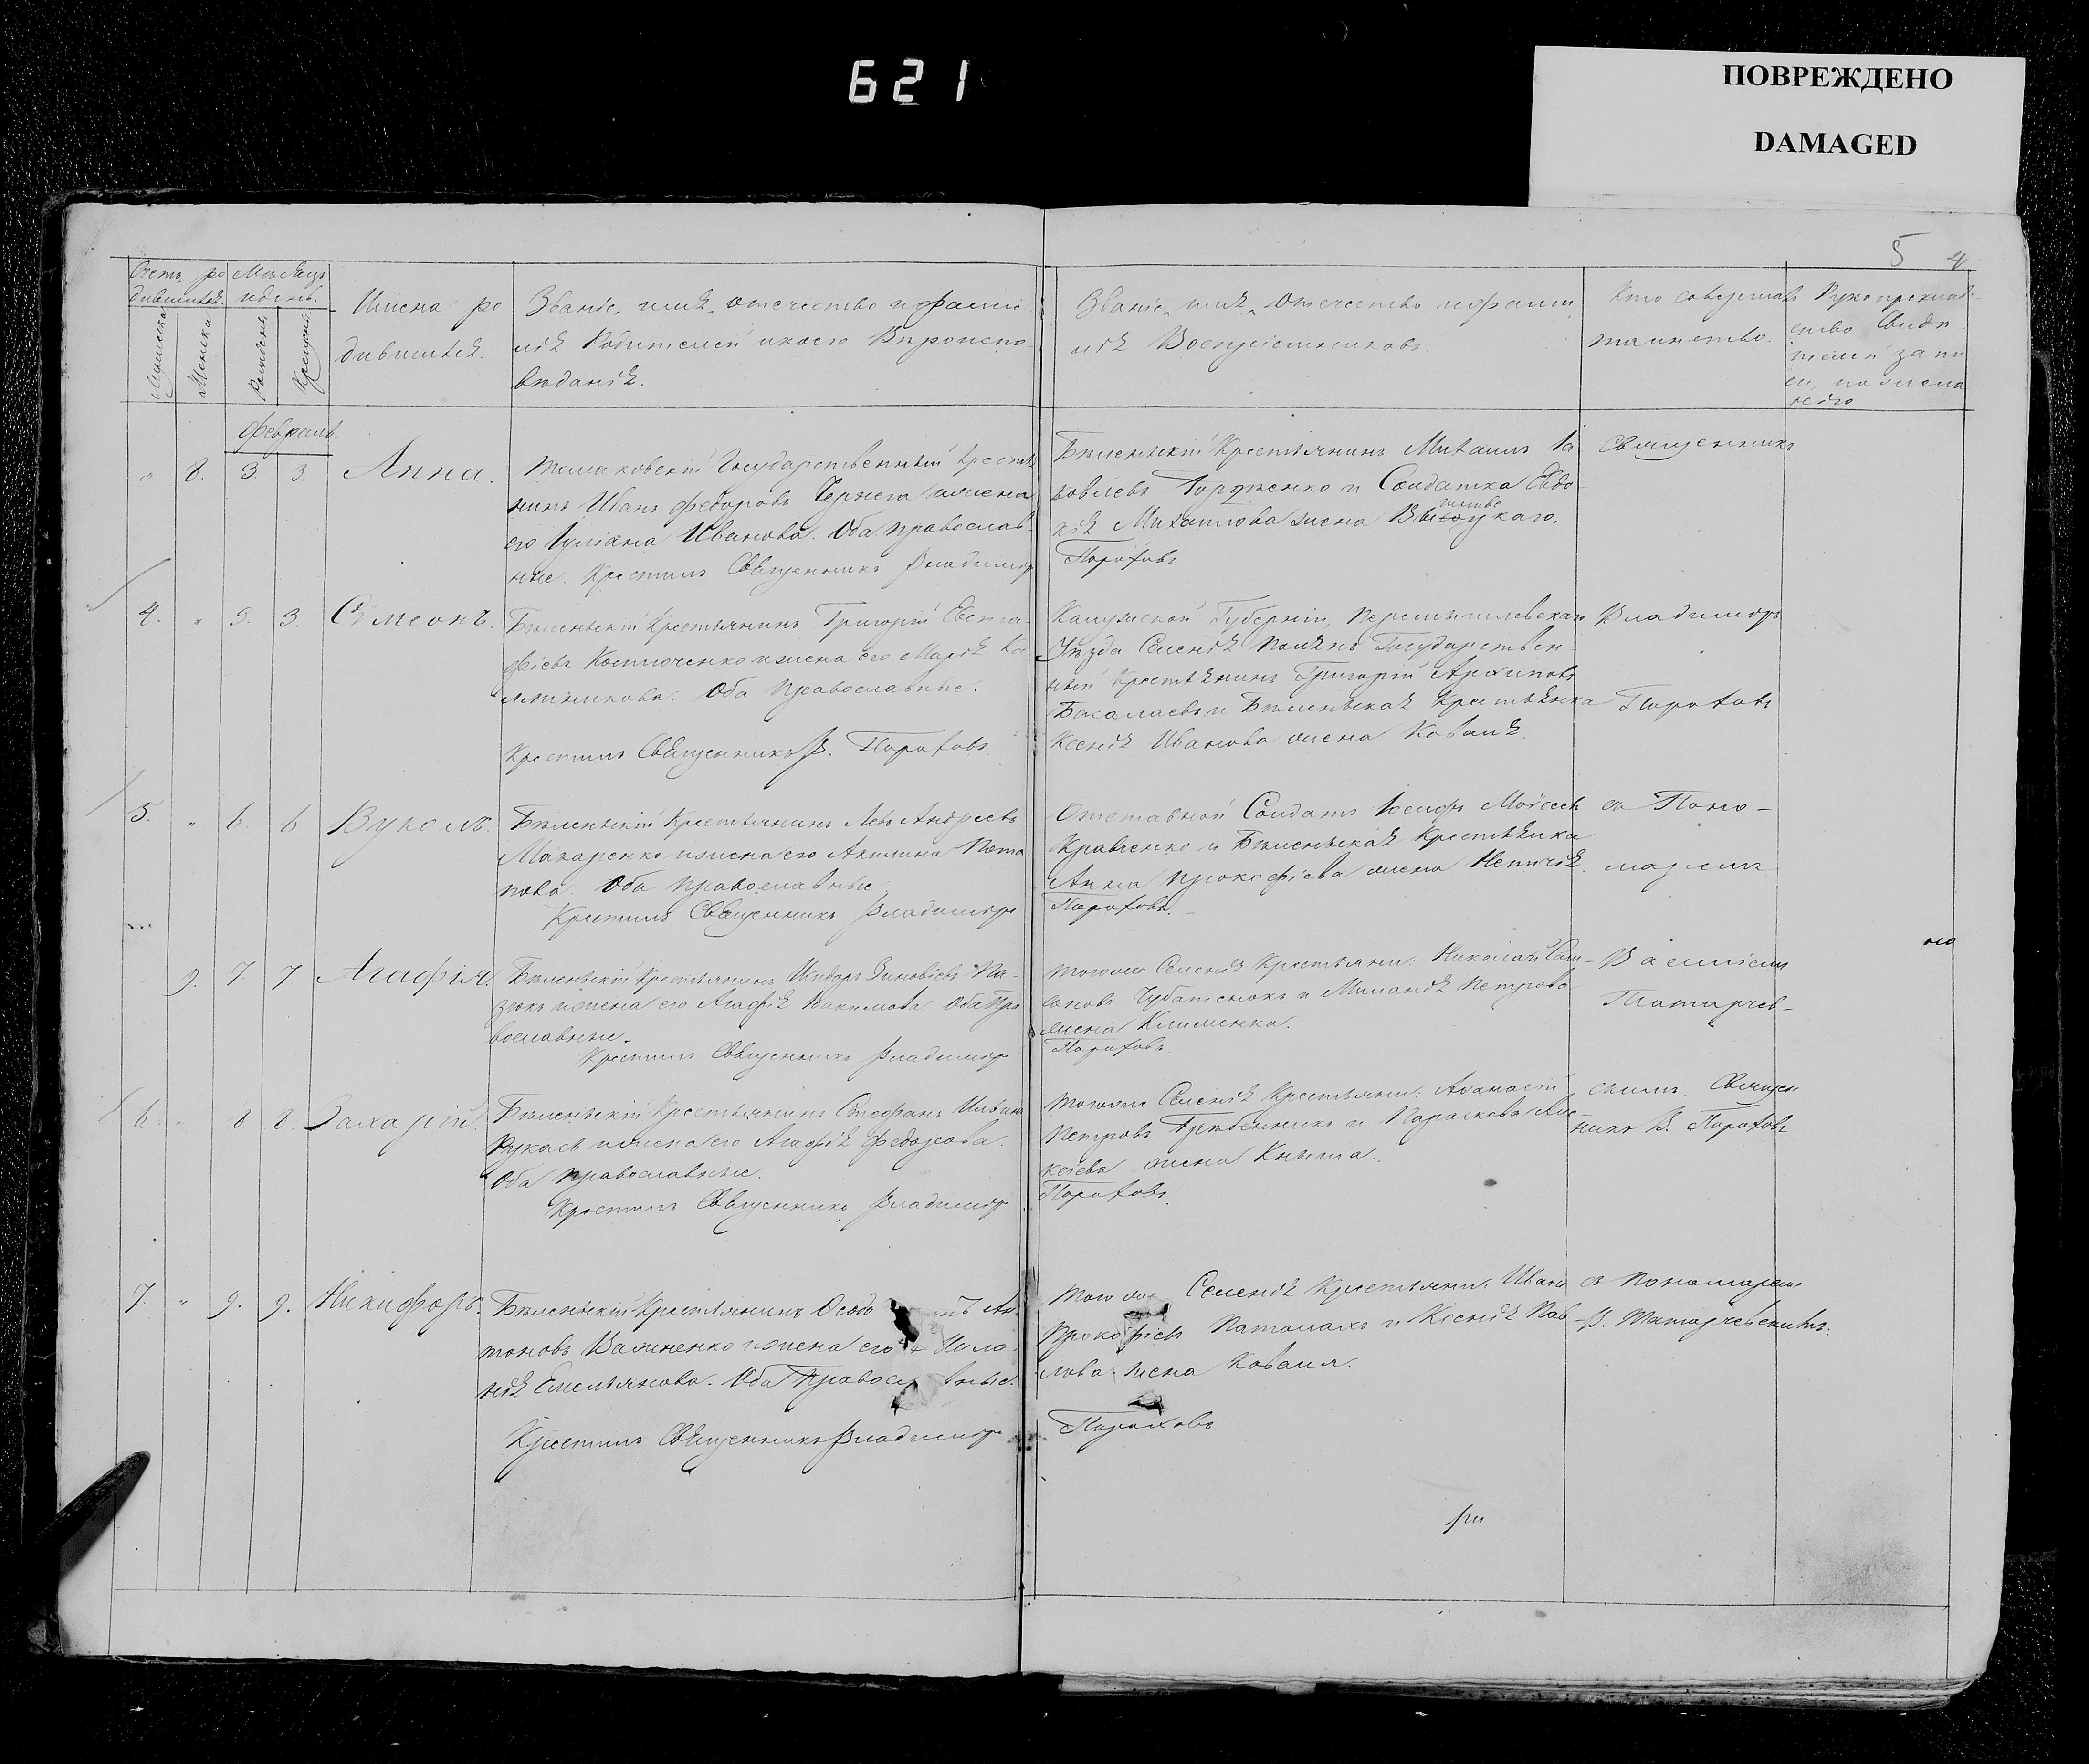 621
ПОВРЕЖДЕНО
DAMAGED
5 4
Счетъ ро
дившихся.
Мѣсяцъ
и день.
Мужеска
Женска
Рожденія
Крещенія
Имена ро
дившихся.
Званіе, имя, отечество и фами
лія Родителей и коего Вѣроиспо-
вѣданія.
Званіе, имя, Отечество и фами
лія Воспріемниковъ.
Кто совершалъ
таинство.
Рукоприклад-
ство свиде
телей запи
си, по жела
нію
Февраль.
" 8. 3. 3. Анна.
Томаковскій Государственный Крестья
нинъ Иванъ Федоровъ Чернега и жена
его Іуліана Иванова. Оба православ-
ные. Крестилъ Священникъ Владиміръ
Бѣленьскій Крестьянинъ Михаилъ Іа
ковлевъ и Солдатка Евдо
кія Михайлова жена
Пороховъ
Священникъ
4. " 3. 3. Сѵмеонъ.
Бѣленьскій Крестьянинъ Григорій Евста-
фіевъ Костюченко и жена его Марія Ка
линникова. Оба Православные.
Крестилъ Священникъ В. Пороховъ
Калужской Губерніи, Перемышлевскаго
Уѣзда Селенія Государствен-
ный Крестьянинъ Григорій Архиповъ
и Бѣленьская Крестьянка
Ксенія Иванова жена Коваля
Владиміръ
Пороховъ
5. " 6. 6 Вуколъ.
Бѣленьскій Крестьянинъ Левъ Андреевъ
Макаренко и жена его Акилина Пота
пова. Оба православные.
Крестилъ Священникъ Владиміръ
Отставной Солдатъ Іосифъ Моѵсеевъ
Кравченко и Бѣленьская Крестьянка
Анна Прокофіева жена
Пороховъ.
съ Поно-
маремъ
9. 7. 7 Агафія.
Бѣленьскій Крестьянинъ Исидоръ Зиновіевъ Па-
зюкъ и жена его Агафія Оба Пра
вославные.
Крестилъ Священникъ Владиміръ
тогоже Селенія Крестьяни: Николай Сам-
соновъ Чубатенокъ и Миланія Петрова
жена Клименка.
Пороховъ.
Василіемъ
Татарчев-
6. " 8 8. Захарій.
Бѣленьскій Крестьянинъ Стефанъ Ильинъ
и жена его Агафія Федорова.
Оба православные.
Крестилъ Священникъ Владиміръ
тогоже Селенія Крестьяни: Афанасій
Петровъ Гребенникъ и Параскева Але-
ксіева жена Кныша.
Пороховъ.
скимъ. Священ
никъ В. Пороховъ
7. " 9. 9. Никифоръ.
Бѣленьскій Крестьянинъ Ан
тоновъ и жена его Мила
нія Емельянова. Оба Правосл вные.
Крестилъ Священникъ Владиміръ
того же Селенія Крестьяни: Иванъ
Прокофіевъ и Ксенія Пав
лова жена Коваля.
Пороховъ
съ Пономаремъ
В. Татарчевскимъ.